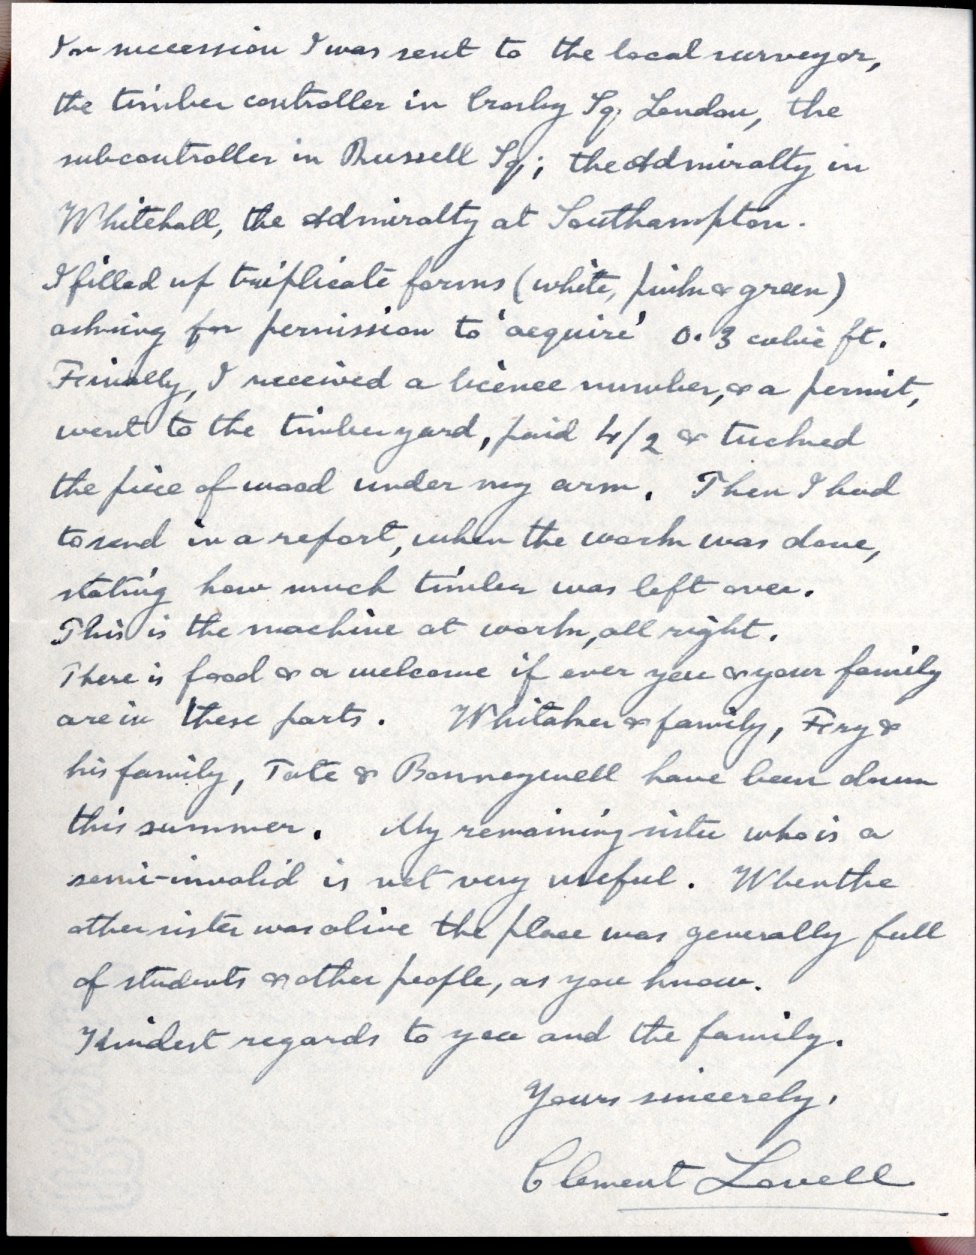 In succession I was sent to the local surveyor,
the timber controller in Crosby Sq. London, the
subcontroller in Russell Sq; the Admiralty in
Whitehall, the Admiralty at Southampton.
I filled up triplicate forms (white, pink & green)
asking for permission to 'acquire' 0.3 cubic ft.
Finally, I received a licence number, & a permit,
went to the timber yard, paid 4/2 & tucked
the piece of wood under my arm. Then I had
to send in a report, when the work was done,
stating how much timber was left over.
This is the machine at work, all right.
There is food & a welcome if ever you & your family
are in these parts. Whitaker & family, Fry &
his family, Tate & Bonneywell have been down
this summer. My remaining sister who is a
semi-invalid is not very useful. When the
other sister was alive the place was generally full
of students & other people, as you know.
Kindest regards to you and the family.
Yours sincerely,
Clement Lovell